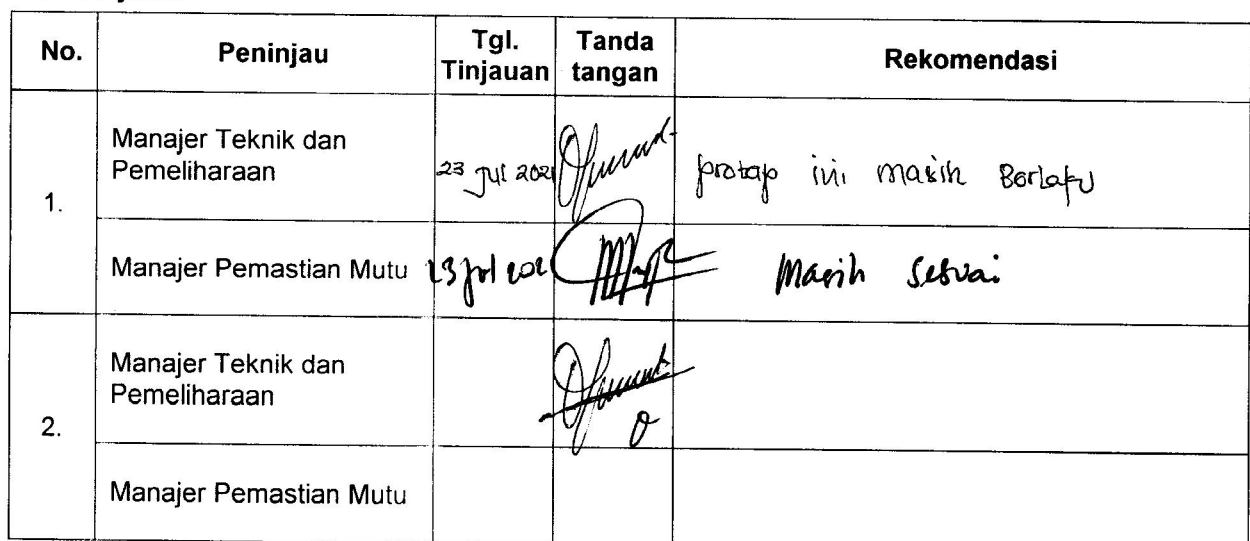 No. Peninjau Tgl. Tinjauan Tanda tangan Rekomendasi
1.
Manajer Teknik dan
Pemeliharaan
23 Jul 2021
protap ini masih Berlaku
Manajer Pemastian Mutu 23 Jul 2021 Masih Sesuai
2.
Manajer Teknik dan
Pemeliharaan
Manajer Pemastian Mutu